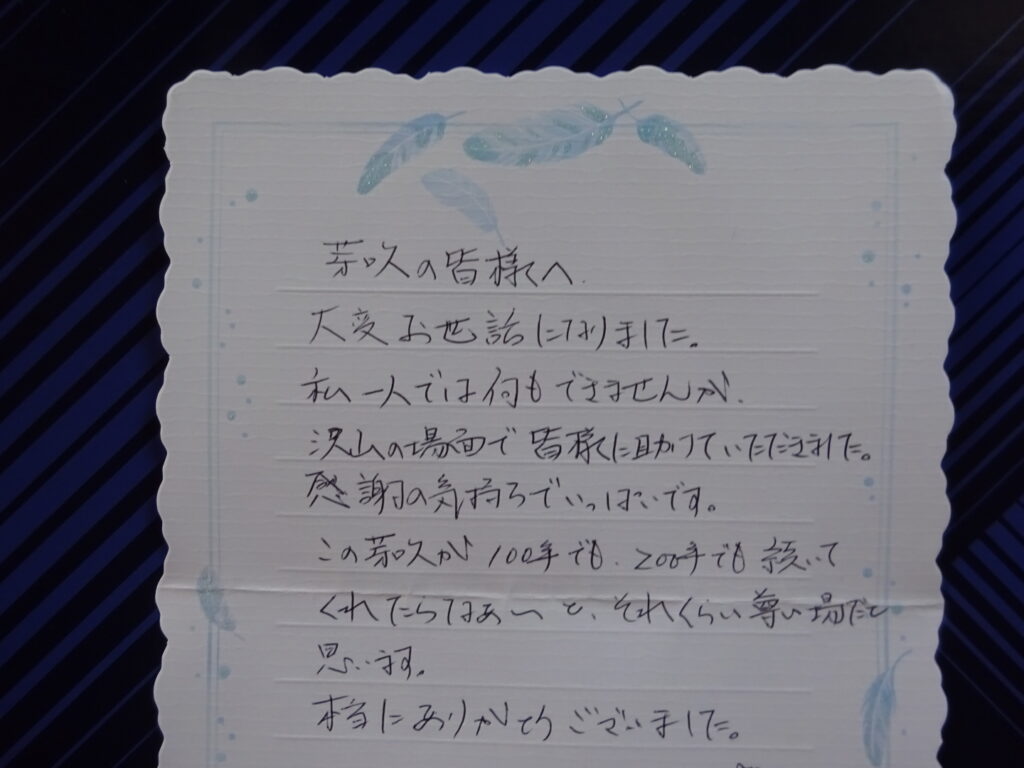 芽吹の皆様へ.
大変お世話になりました。
私一人では何もできませんが、
沢山の場面で皆様に助けていただきました。
感謝の気持ちでいっぱいです。
この芽吹が100年でも、200年でも続いて
くれたらなぁ〜と、それくらい尊い場だと
思います。
本当にありがとうございました。